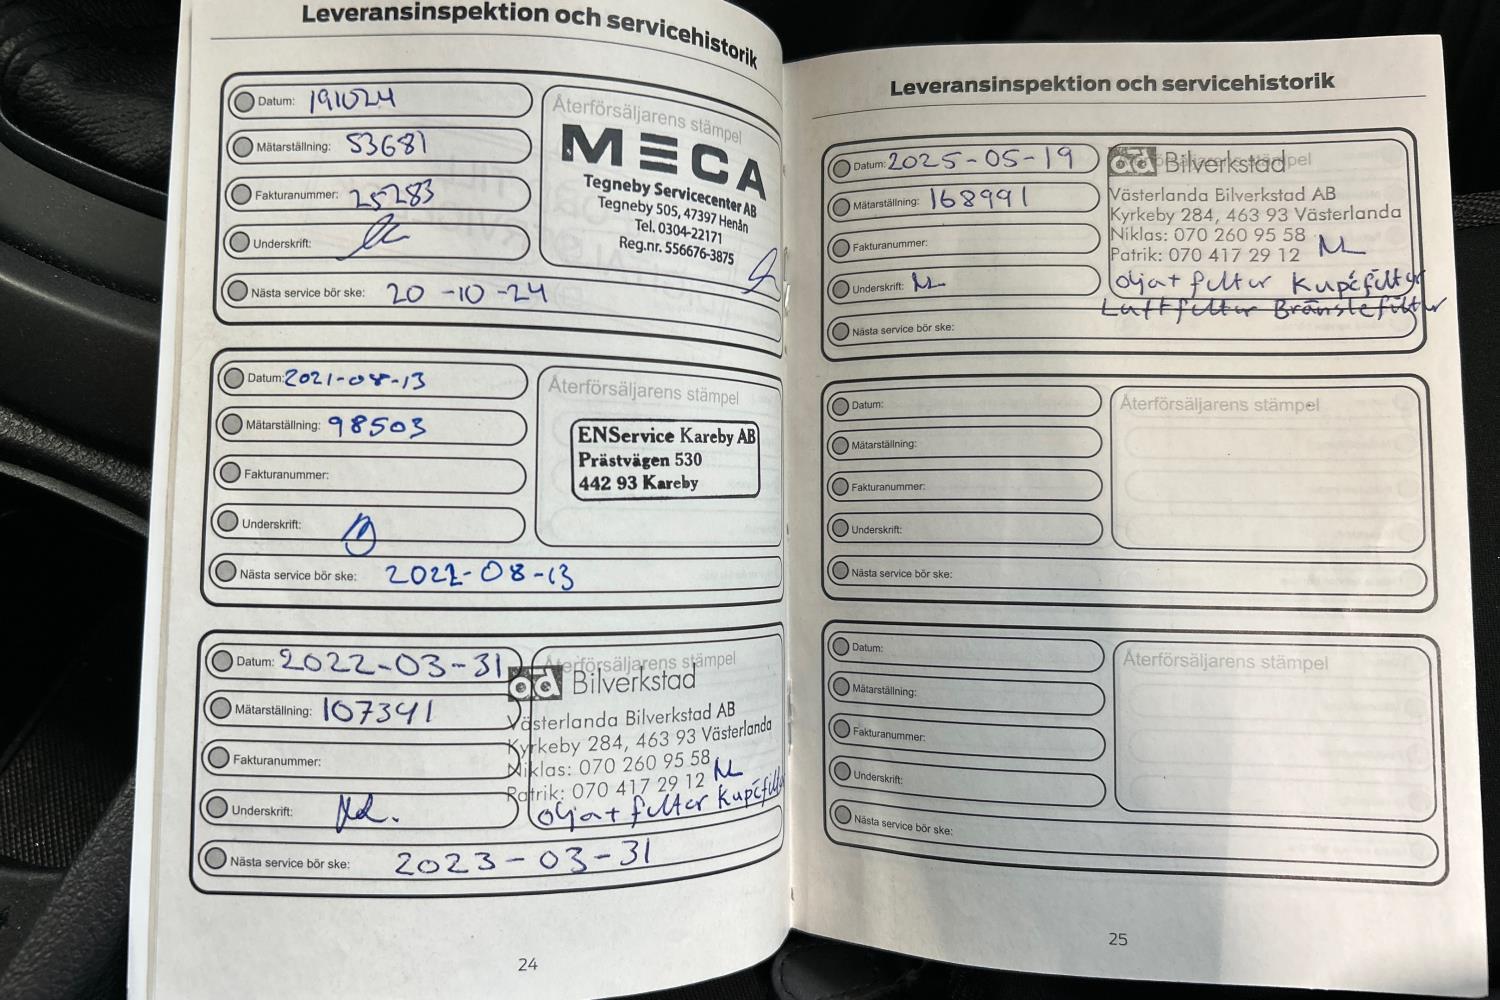 Leveransinspektion och servicehistorik
Datum: 191024
Mätarställning: 53681
Fakturanummer: 25283
Underskrift:
Nästa service bör ske: 20-10-24
Återförsäljarens stämpel
MECA
Tegneby Servicecenter AB
Tegneby 505, 47397 Henån
Tel. 0304-22171
Reg.nr. 556676-3875
Datum: 2021-08-13
Mätarställning: 98503
Fakturanummer:
Underskrift:
Nästa service bör ske: 2022-08-13
Återförsäljarens stämpel
ENService Kareby AB
Prästvägen 530
442 93 Kareby
Datum: 2022-03-31
Mätarställning: 107341
Fakturanummer:
Underskrift:
Nästa service bör ske: 2023-03-31
Återförsäljarens stämpel
ad Bilverkstad
Västerlanda Bilverkstad AB
Kyrkeby 284, 463 93 Västerlanda
Niklas: 070 260 95 58
Patrik: 070 417 29 12
olja+filter Kupéfilter
24
Leveransinspektion och servicehistorik
Datum: 2025-05-19
Mätarställning: 168991
Fakturanummer:
Underskrift:
Nästa service bör ske:
Återförsäljarens stämpel
ad Bilverkstad
Västerlanda Bilverkstad AB
Kyrkeby 284, 463 93 Västerlanda
Niklas: 070 260 95 58
Patrik: 070 417 29 12
olja+filter Kupéfilter
Luftfilter Bränslefilter
Datum:
Mätarställning:
Fakturanummer:
Underskrift:
Nästa service bör ske:
Återförsäljarens stämpel
Datum:
Mätarställning:
Fakturanummer:
Underskrift:
Nästa service bör ske:
Återförsäljarens stämpel
25